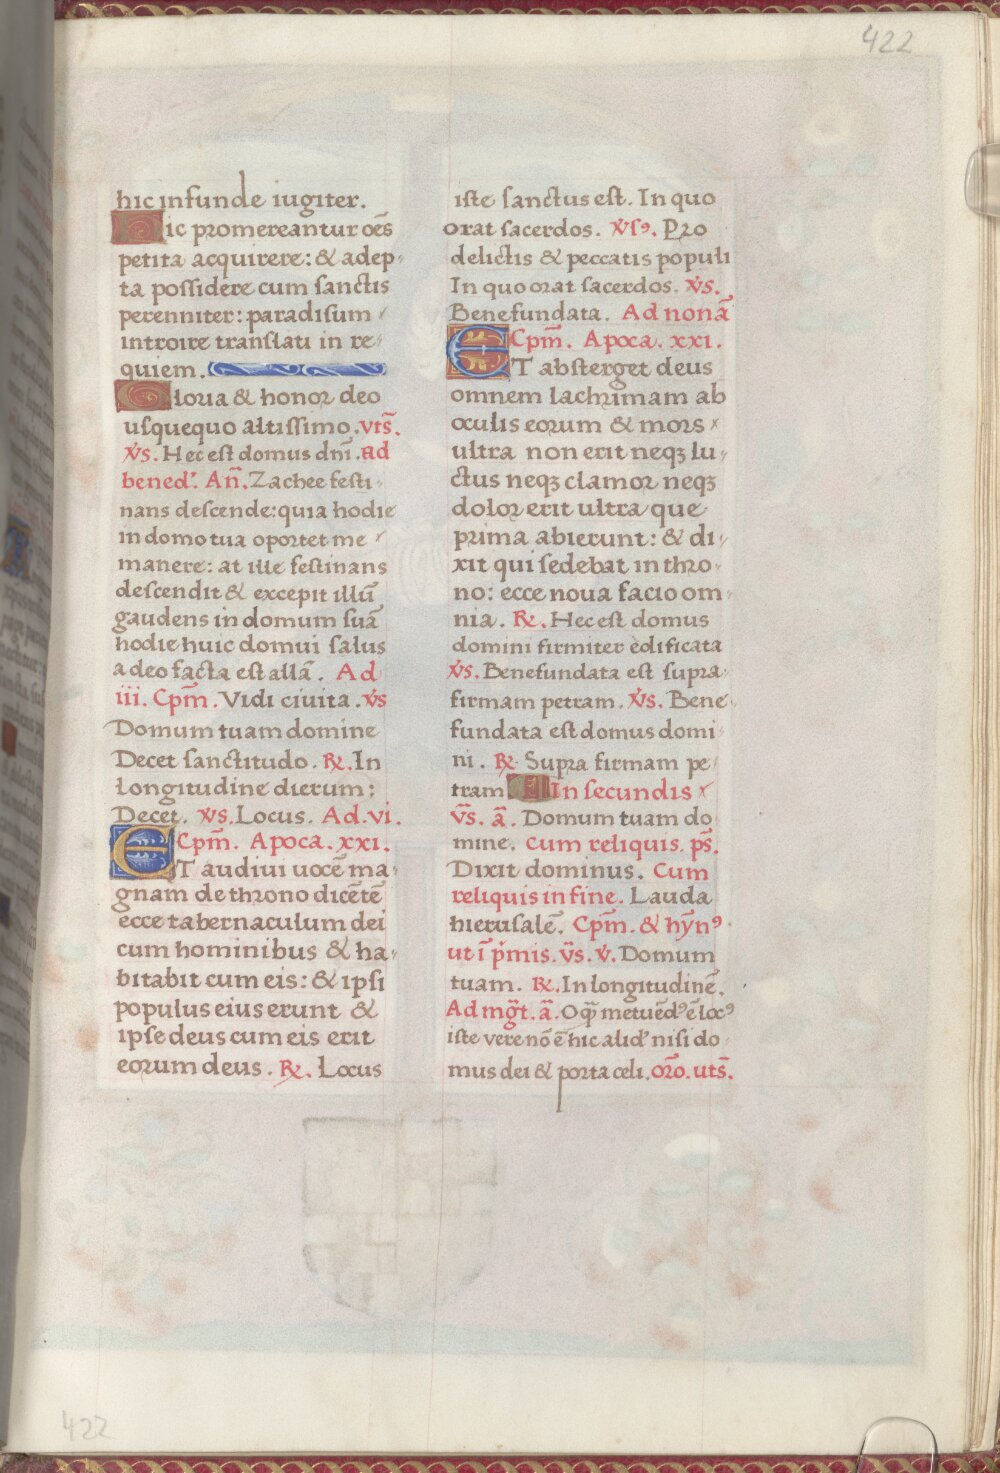 422
hic infunde iugiter.
Hic promereantur oēs
petita acquirere: & adep-
ta possidere cum sanctis
perenniter: paradisum
introire translati in re-
quiem.
Gloria & honor deo
usquequo altissimo. vts̄.
v̄s. Hec est domus dn̄i. ad
bened. An̄. Zachee festi-
nans descende: quia hodie
in domo tua oportet me
manere: at ille festinans
descendit & excepit illū
gaudens in domum suā
hodie huic domui salus
a deo facta est allā. Ad
iii. Cpm̄. Vidi civita. v̄s
Domum tuam domine
Decet sanctitudo. ℟. In
longitudine dierum:
Decet. v̄s. Locus. Ad. vi.
Cpm̄. Apoca. xxi.
ET audivi vocē ma-
gnam de throno dicētē
ecce tabernaculum dei
cum hominibus & ha-
bitabit cum eis: & ipsi
populus eius erunt &
ipse deus cum eis erit
eorum deus. ℟. Locus
iste sanctus est. In quo
orat sacerdos. v̄sꝰ. Pro
delictis & peccatis populi
In quo orat sacerdos. v̄s.
Benefundata. Ad nonā
Cpm̄. Apoca. xxi.
ET absterget deus
omnem lachrimam ab
oculis eorum & mors
ultra non erit neqꝫ lu-
ctus neqꝫ clamor neqꝫ
dolor erit ultra que
prima abierunt: & di-
xit qui sedebat in thro-
no: ecce nova facio om-
nia. ℟. Hec est domus
domini firmiter edificata
v̄s. Benefundata est supra
firmam petram. v̄s. Bene
fundata est domus domi-
ni. ℟. Supra firmam pe
tram In secundis
v̄s. ā. Domum tuam do
mine. Cum reliquis. ps̄.
Dixit dominus. Cum
reliquis in fine. Lauda
hierusalē. Cpm̄. & hȳnꝰ
ut ī p̄mis. v̄s. v̄. Domum
tuam. ℟. In longitudinē.
Ad mḡt. ā. O q̄ metuēdꝰ ē locꝰ
iste vere nō ē hic alid nisi do-
mus dei & porta celi. orō. uts̄.
422